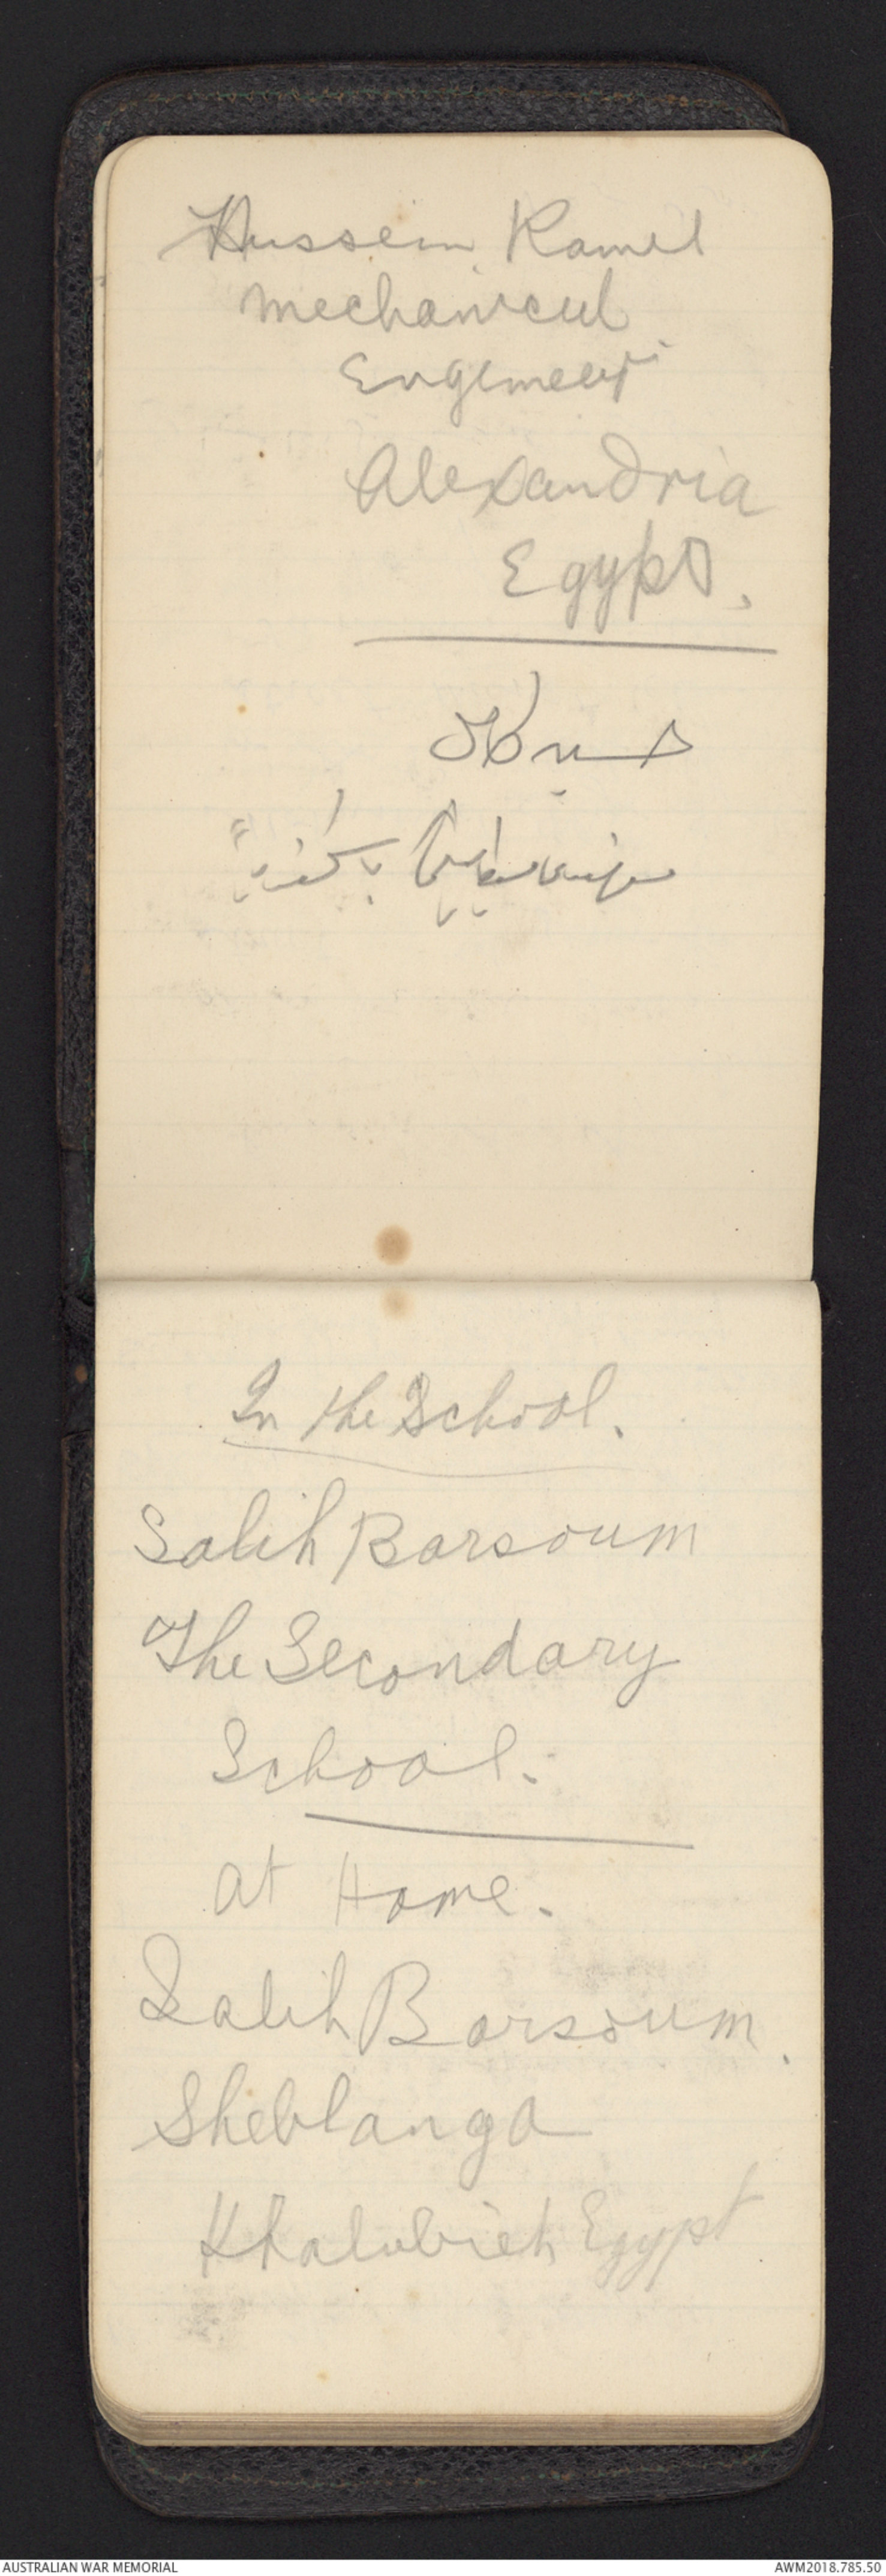 Hussein Kamel
Mechanical
Engineer
Alexandria
Egypt.
حسين كامل
مهندس ميكانيكى باسكندرية
In the School.
Salih Barsoum
The Secondary
School.
at Home.
Salih Barsoum.
Sheblanga
Khalubieh Egypt
AUSTRALIAN WAR MEMORIAL
AWM2018.785.50